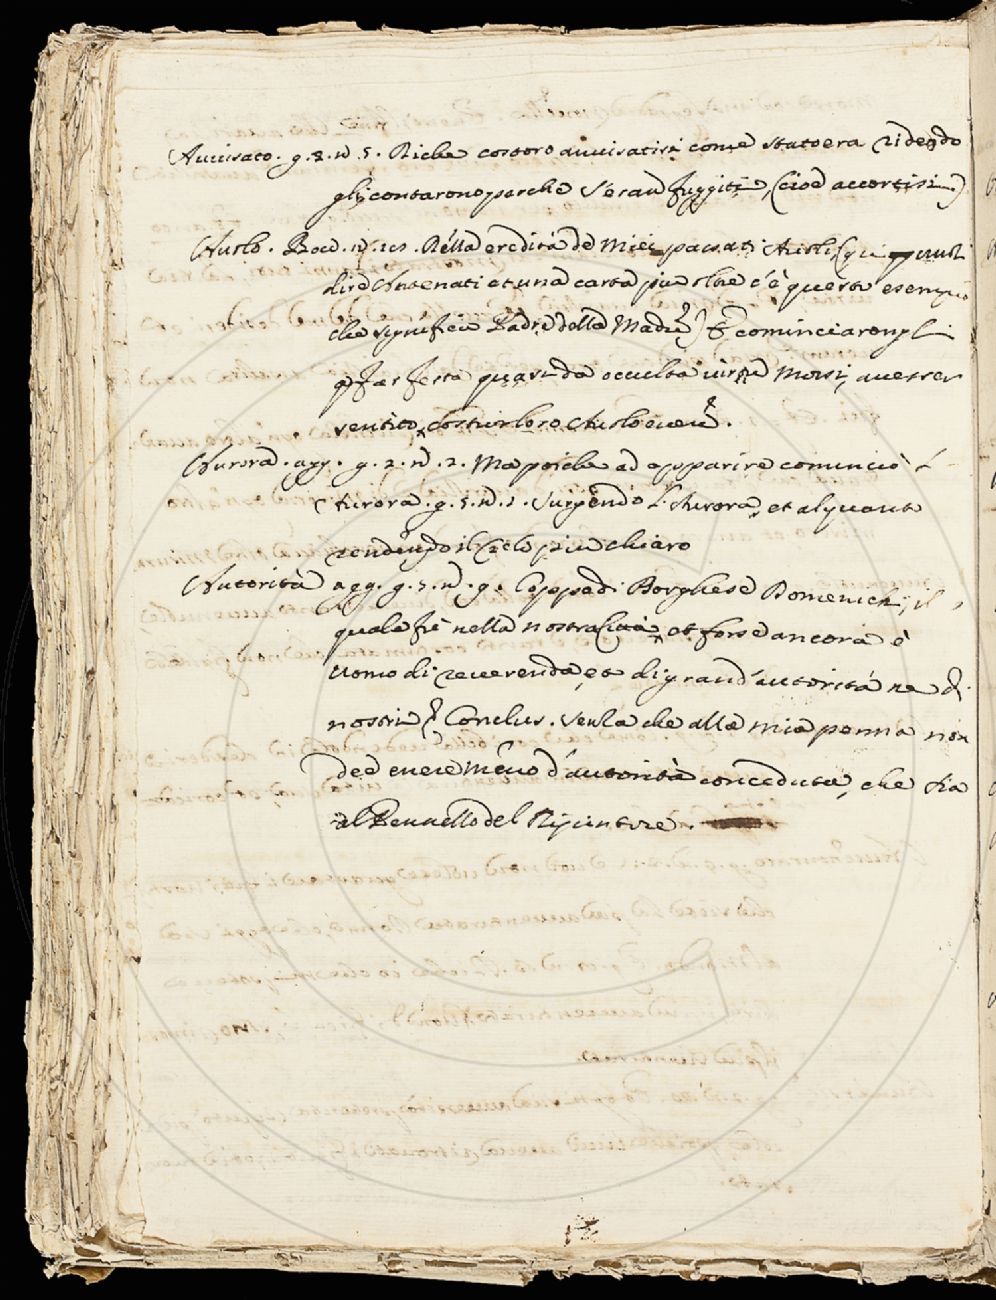 Auuisato. g. 8. n. 5. Diche costoro auuisatisi come stato era ridendo
gli contarono perche s'eran fuggiti, (cioè accortisi)
Auolo. Bocc. n. Nella eredità de miei passati Auoli (qui
dire Antenati et una carta più oltre c'è questo esempio
che significa Padre della Madre) Et cominciarongl
far festa
sentito costui loro Auolo
Aurora. agg. g. 2. n. 2. Ma poiche ad apparire cominciò l'
Aurora. g. 5. n. 1. Surgendo l'Aurora, et alquanto
rendendo il cielo piu chiaro
Autorità agg. g. 5. n. 9. Coppo di Borghese Domenichi, il
quale fù nella nostra Città, et forse ancora è
uomo di reuerenda, et di grand'autorità ne dì
nostri Conclus. senza che alla mia penna non
dee essere meno d'autorità conceduta, che sia
al Pennello del Dipintore.